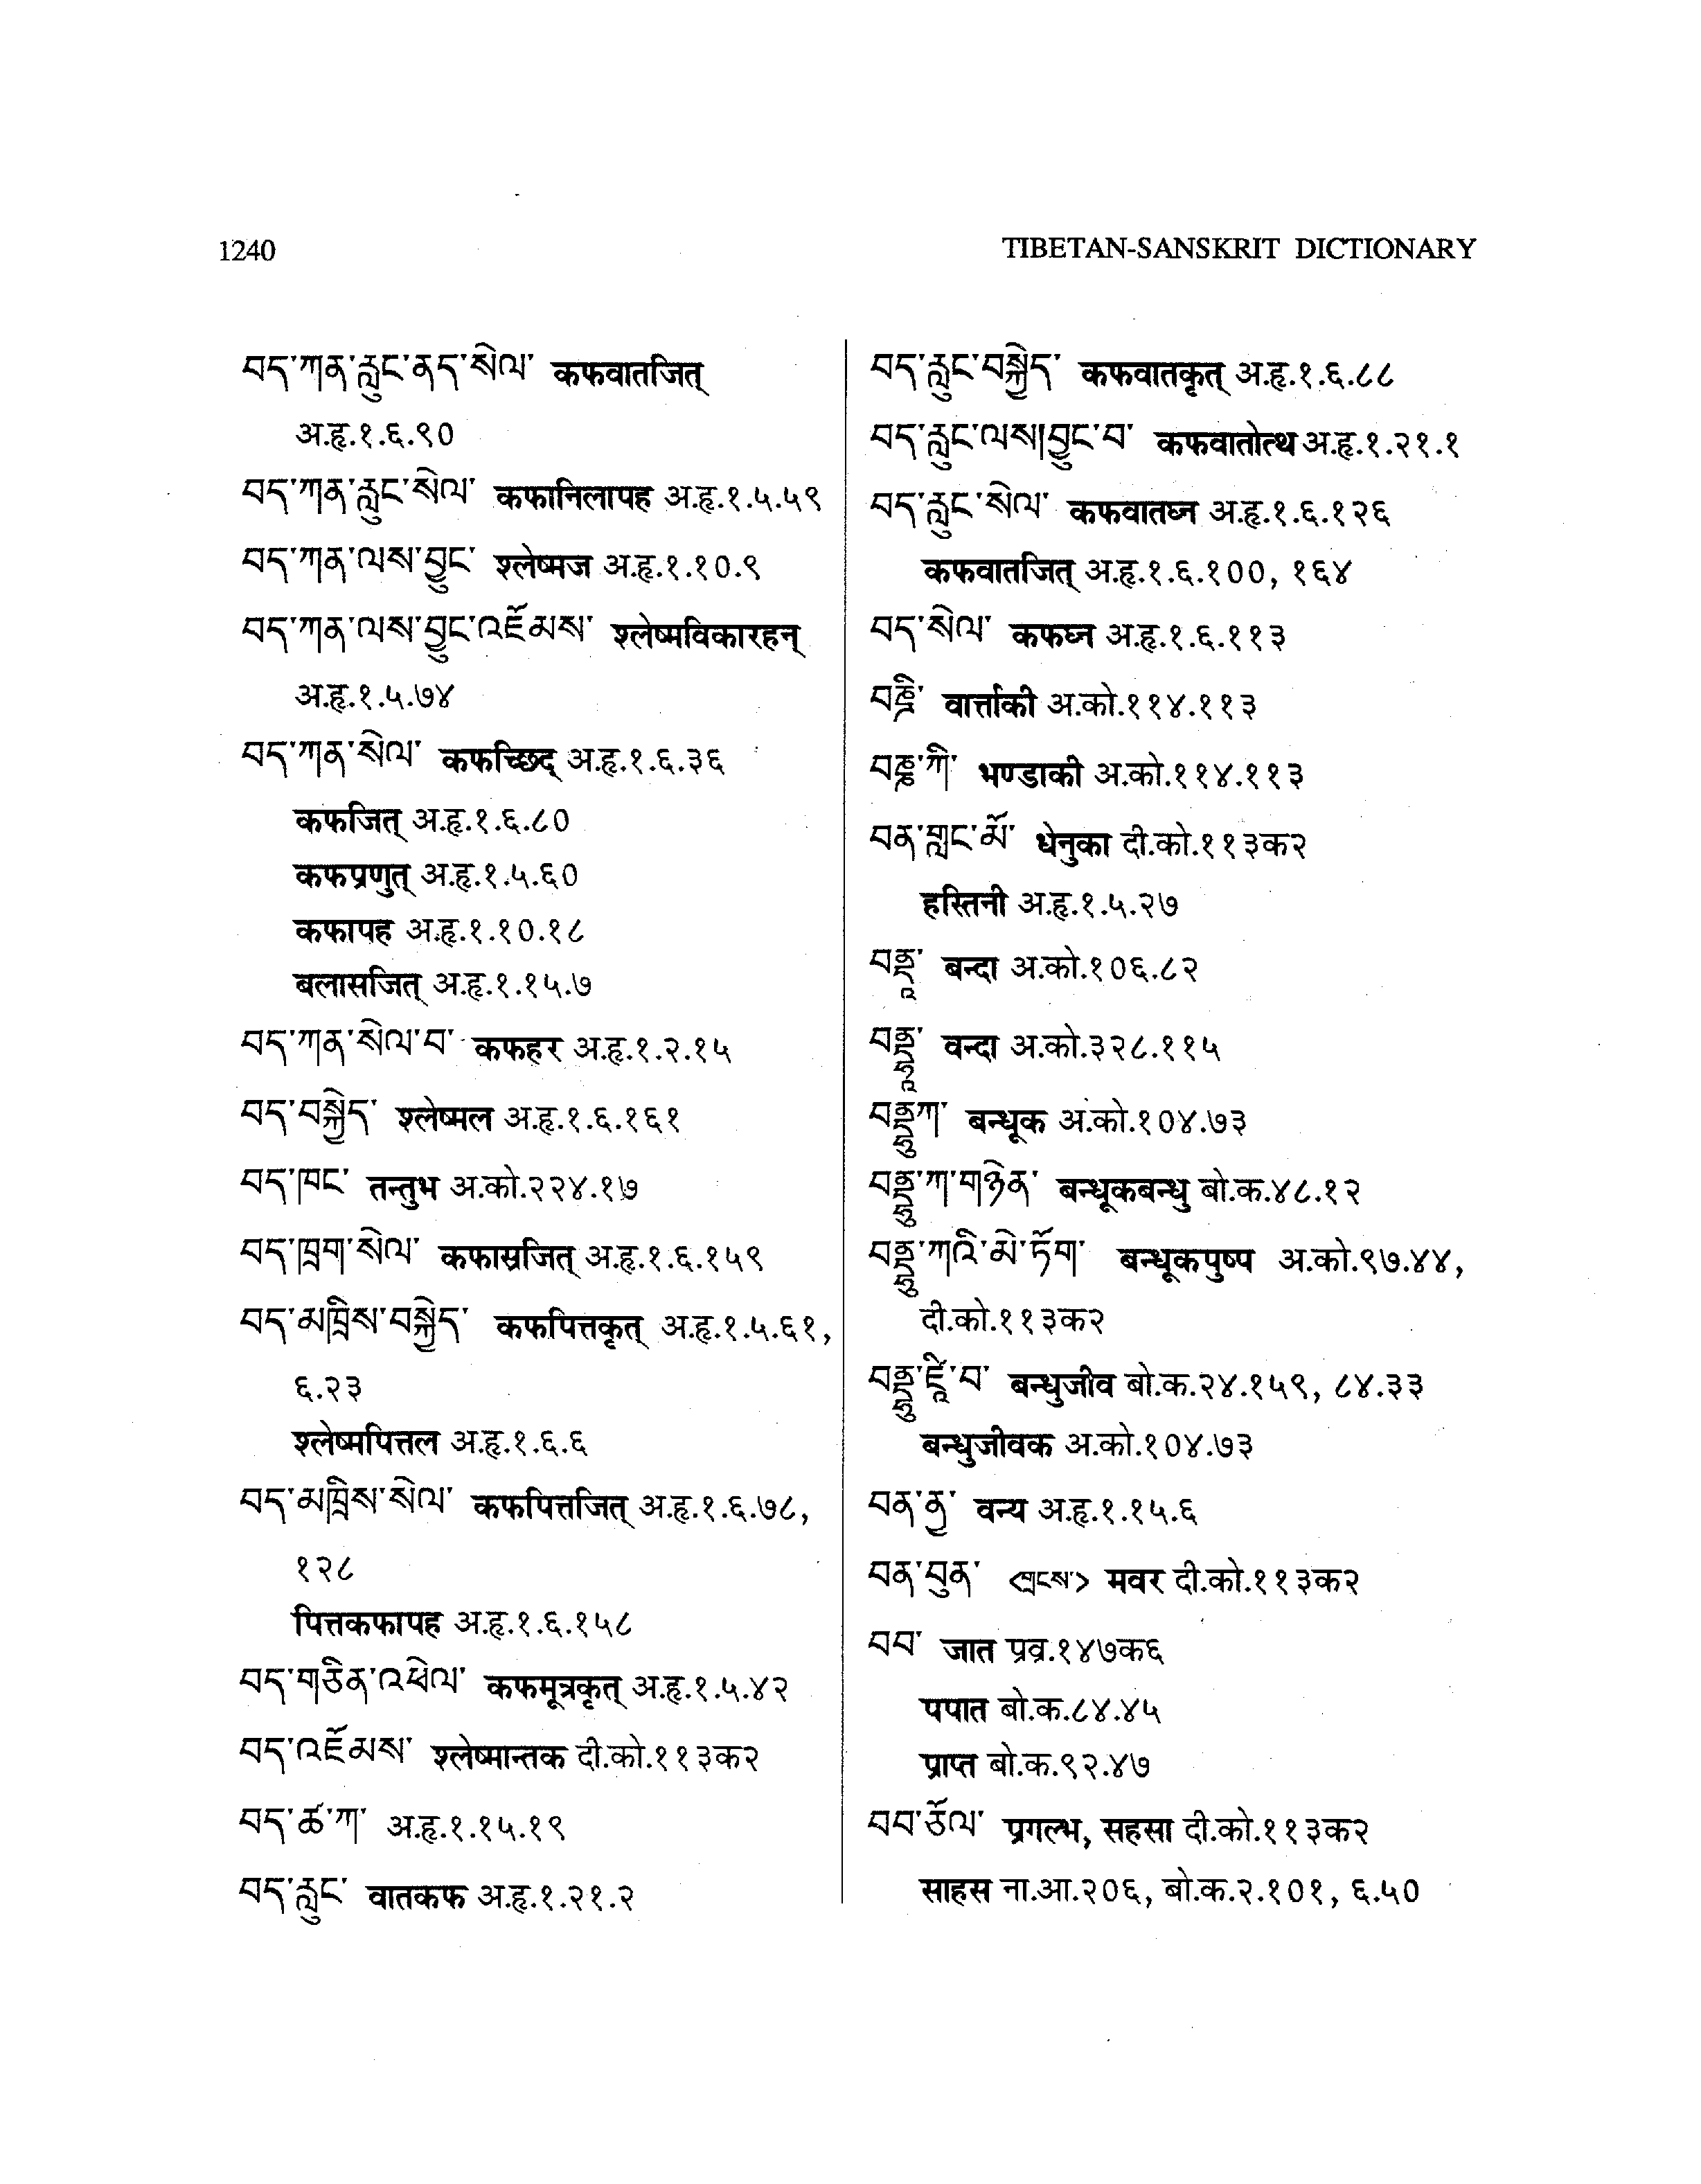 1240
TIBETAN-SANSKRIT DICTIONARY
བད་ཀན་རླུང་ནད་སེལ་ कफवातजित्
अ.हृ.१.६.९०
བད་ཀན་རླུང་སེལ་ कफानिलापह अ.हृ.१.५.५९
བད་ཀན་ལས་བྱུང་ श्लेष्मज अ.हृ.१.१०.९
བད་ཀན་ལས་བྱུང་འཇོམས་ श्लेष्मविकारहन्
अ.हृ.१.५.७४
བད་ཀན་སེལ་ कफच्छिद् अ.हृ.१.६.३६
कफजित् अ.हृ.१.६.८०
कफप्रणुत् अ.हृ.१.५.६०
कफापह अ.हृ.१.१०.१८
बलासजित् अ.हृ.१.१५.७
བད་ཀན་སེལ་བ་ कफहर अ.हृ.१.२.१५
བད་བསྐྱེད་ श्लेष्मल अ.हृ.१.६.१६१
བད་ཁང་ तन्तुभ अ.को.२२४.१७
བད་ཁྲག་སེལ་ कफास्रजित् अ.हृ.१.६.१५९
བད་མཁྲིས་བསྐྱེད་ कफपित्तकृत् अ.हृ.१.५.६१,
६.२३
श्लेष्मपित्तल अ.हृ.१.६.६
བད་མཁྲིས་སེལ་ कफपित्तजित् अ.हृ.१.६.७८,
१२८
पित्तकफापह अ.हृ.१.६.१५८
བད་གཅིན་འཕེལ་ कफमूत्रकृत् अ.हृ.१.५.४२
བད་འཇོམས་ श्लेष्मान्तक दी.को.११३क२
བད་ཚ་ཀ་ अ.हृ.१.१५.१९
བད་རླུང་ वातकफ अ.हृ.१.२१.२
བད་རླུང་བསྐྱེད་ कफवातकृत् अ.हृ.१.६.८८
བད་རླུང་ལས།བྱུང་བ་ कफवातोत्थ अ.हृ.१.२१.१
བད་རླུང་སེལ་ कफवातघ्न अ.हृ.१.६.१२६
कफवातजित् अ.हृ.१.६.१००, १६४
བད་སེལ་ कफघ्न अ.हृ.१.६.११३
वार्त्ताकी अ.को.११४.११३
भण्डाकी अ.को.११४.११३
བན་གླང་མོ་ धेनुका दी.को.११३क२
हस्तिनी अ.हृ.१.५.२७
बन्दा अ.को.१०६.८२
वन्दा अ.को.३२८.११५
बन्धूक अ.को.१०४.७३
बन्धूकबन्धु बो.क.४८.१२
बन्धूकपुष्प अ.को.९७.४४,
दी.को.११३क२
बन्धुजीव बो.क.२४.१५९, ८४.३३
बन्धुजीवक अ.को.१०४.७३
བན་ནྱ་ वन्य अ.हृ.१.१५.६
བན་བུན་ <གྲངས་> मवर दी.को.११३क२
བབ་ जात प्रव्र.१४७क६
पपात बो.क.८४.४५
प्राप्त बो.क.९२.४७
བབ་ཅོལ་ प्रगल्भ, सहसा दी.को.११३क२
साहस ना.आ.२०६, बो.क.२.१०१, ६.५०